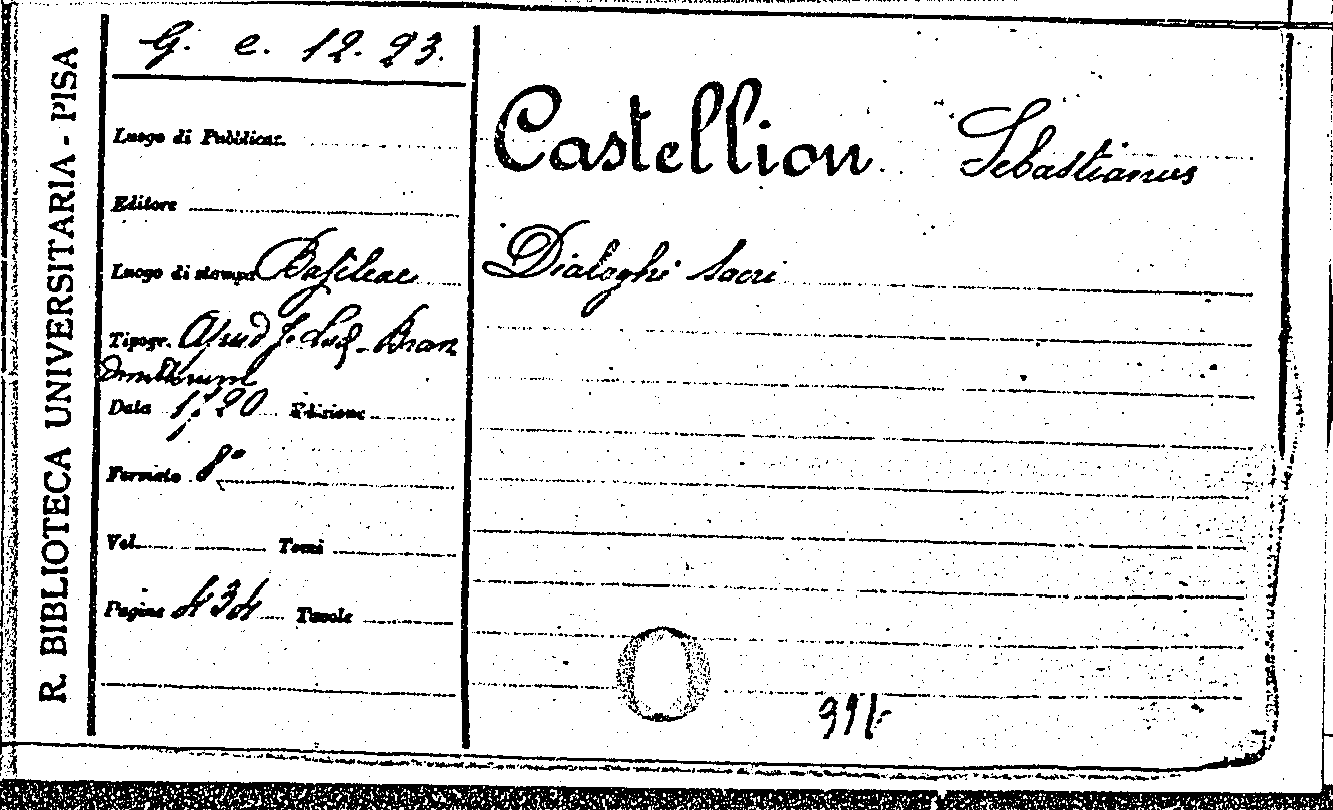 R. BIBLIOTECA UNIVERSITARIA - PISA
G. e. 12. 23.
Luogo di Pubblicaz.
Editore
Luogo di stampa Basileae
Tipogr. Apud J. Lud. Bran
dmullerum
Data 1720 Edizione
Formato 8°
Vol. Tomi
Pagine 434 Tavole
Castellion Sebastianus
Dialoghi Sacri